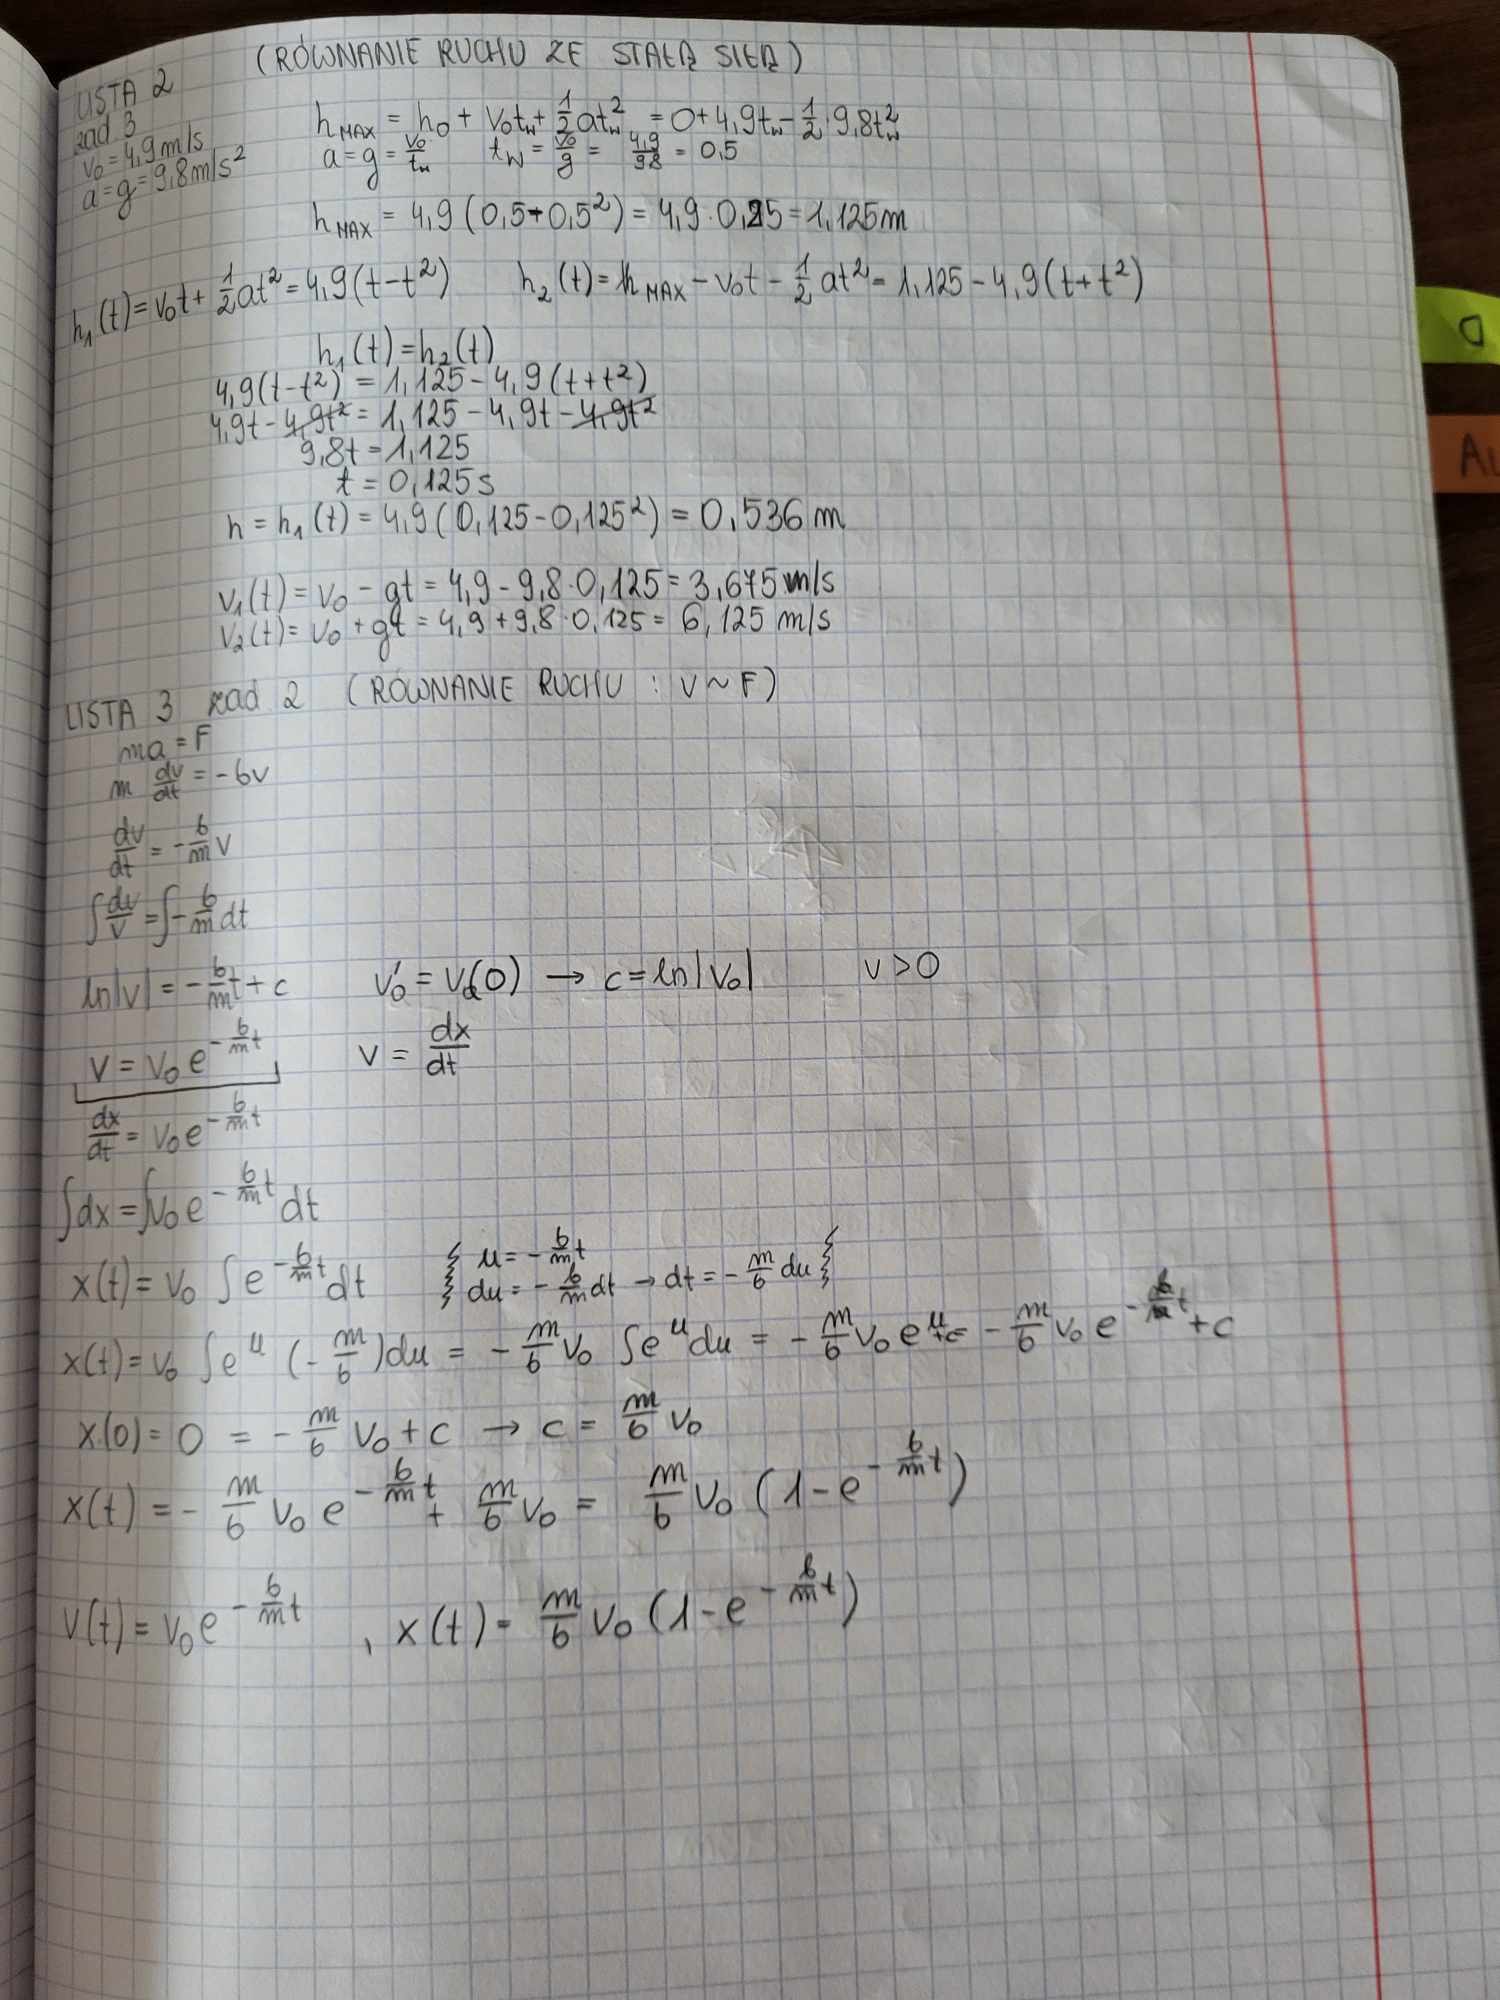 (RÓWNANIE RUCHU ZE STAŁĄ SIŁĄ)
LISTA 2
zad 3
v₀ = 4,9 m/s
a = g = 9,8 m/s²
h_MAX = h₀ + v₀t_w + 1/2 at_w² = 0 + 4,9t_w - 1/2 · 9,8t_w²
a = g = v₀/t_w    t_w = v₀/g = 4,9/9,8 = 0,5
h_MAX = 4,9 (0,5 - 0,5²) = 4,9 · 0,25 = 1,125 m
h₁(t) = v₀t + 1/2 at² = 4,9(t - t²)    h₂(t) = h_MAX - v₀t - 1/2 at² = 1,125 - 4,9(t + t²)
h₁(t) = h₂(t)
4,9(t - t²) = 1,125 - 4,9(t + t²)
4,9t - 4,9t² = 1,125 - 4,9t - 4,9t²
9,8t = 1,125
t = 0,125 s
h = h₁(t) = 4,9(0,125 - 0,125²) = 0,536 m
v₁(t) = v₀ - gt = 4,9 - 9,8 · 0,125 = 3,675 m/s
v₂(t) = v₀ + gt = 4,9 + 9,8 · 0,125 = 6,125 m/s
LISTA 3 zad 2 (RÓWNANIE RUCHU : V ~ F)
ma = F
m dv/dt = -bv
dv/dt = -b/m v
∫ dv/v = ∫ -b/m dt
ln|v| = -b/m t + c    v₀ = v(0) → c = ln|v₀|    v > 0
v = v₀ e^(-b/m t)    v = dx/dt
dx/dt = v₀ e^(-b/m t)
∫dx = ∫v₀ e^(-b/m t) dt
x(t) = v₀ ∫ e^(-b/m t) dt    { u = -b/m t
du = -b/m dt → dt = -m/b du }
x(t) = v₀ ∫ e^u (-m/b) du = -m/b v₀ ∫ e^u du = -m/b v₀ e^u + c = -m/b v₀ e^(-b/m t) + c
x(0) = 0 = -m/b v₀ + c → c = m/b v₀
x(t) = -m/b v₀ e^(-b/m t) + m/b v₀ = m/b v₀ (1 - e^(-b/m t))
v(t) = v₀ e^(-b/m t) , x(t) = m/b v₀ (1 - e^(-b/m t))